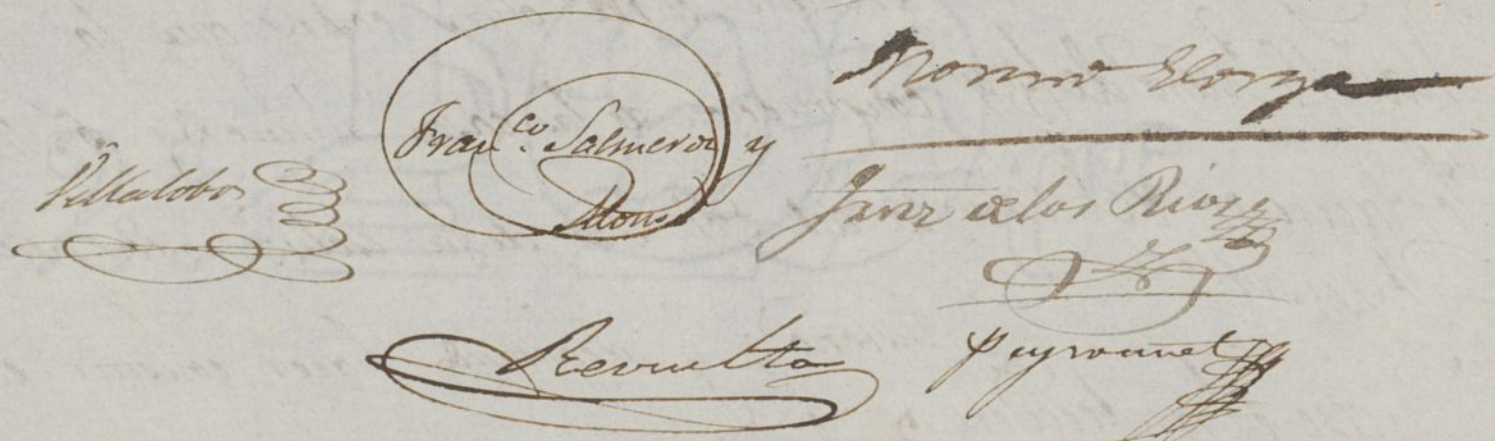 Villalobos
Fran.co Salmeron y
Alonso
Moreno Elorza
Sanz de los Rios
Revuelta
Peyronnet